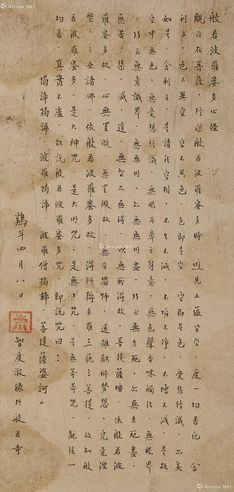 般若波羅蜜多心經
觀自在菩薩·行深般若波羅蜜多時·照見五蘊皆空·度一切苦厄·舍
利子·色不異空·空不異色·色即是空·空即是色·受想行識·亦復
如是·舍利子·是諸法空相·不生不滅·不垢不淨·不增不減·是故
空中無色·無受想行識·無眼耳鼻舌身意·無色聲香味觸法·無眼界
乃至無意識界·無無明·亦無無明盡·乃至無老死·亦無老死盡·
無苦集滅道·無智亦無得·以無所得故·菩提薩埵·依般若波
羅蜜多故·心無罣礙·無罣礙故·無有恐怖·遠離顛倒夢想·究竟涅
槃·三世諸佛·依般若波羅蜜多故·得阿耨多羅三藐三菩提·故知般
若波羅蜜多·是大神咒·是大明咒·是無上咒·是無等等咒·能除一
切苦·真實不虛·故說般若波羅蜜多咒·即說咒曰：
揭諦揭諦·波羅揭諦·波羅僧揭諦·菩提薩婆訶
鷄年四月八日
智度敬錄於般若寺
Artron.Net